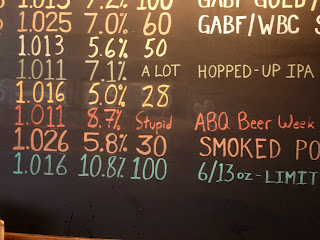 1.015 7.2% 100 GABF GOLD/
1.025 7.0% 60 GABF/WBC S
1.013 5.6% 50
1.011 7.1% A LOT HOPPED-UP IPA
1.016 5.0% 28
1.011 8.7% Stupid ABQ Beer Week
1.026 5.8% 30 SMOKED PO
1.016 10.8% 100 6/13oz-LIMIT